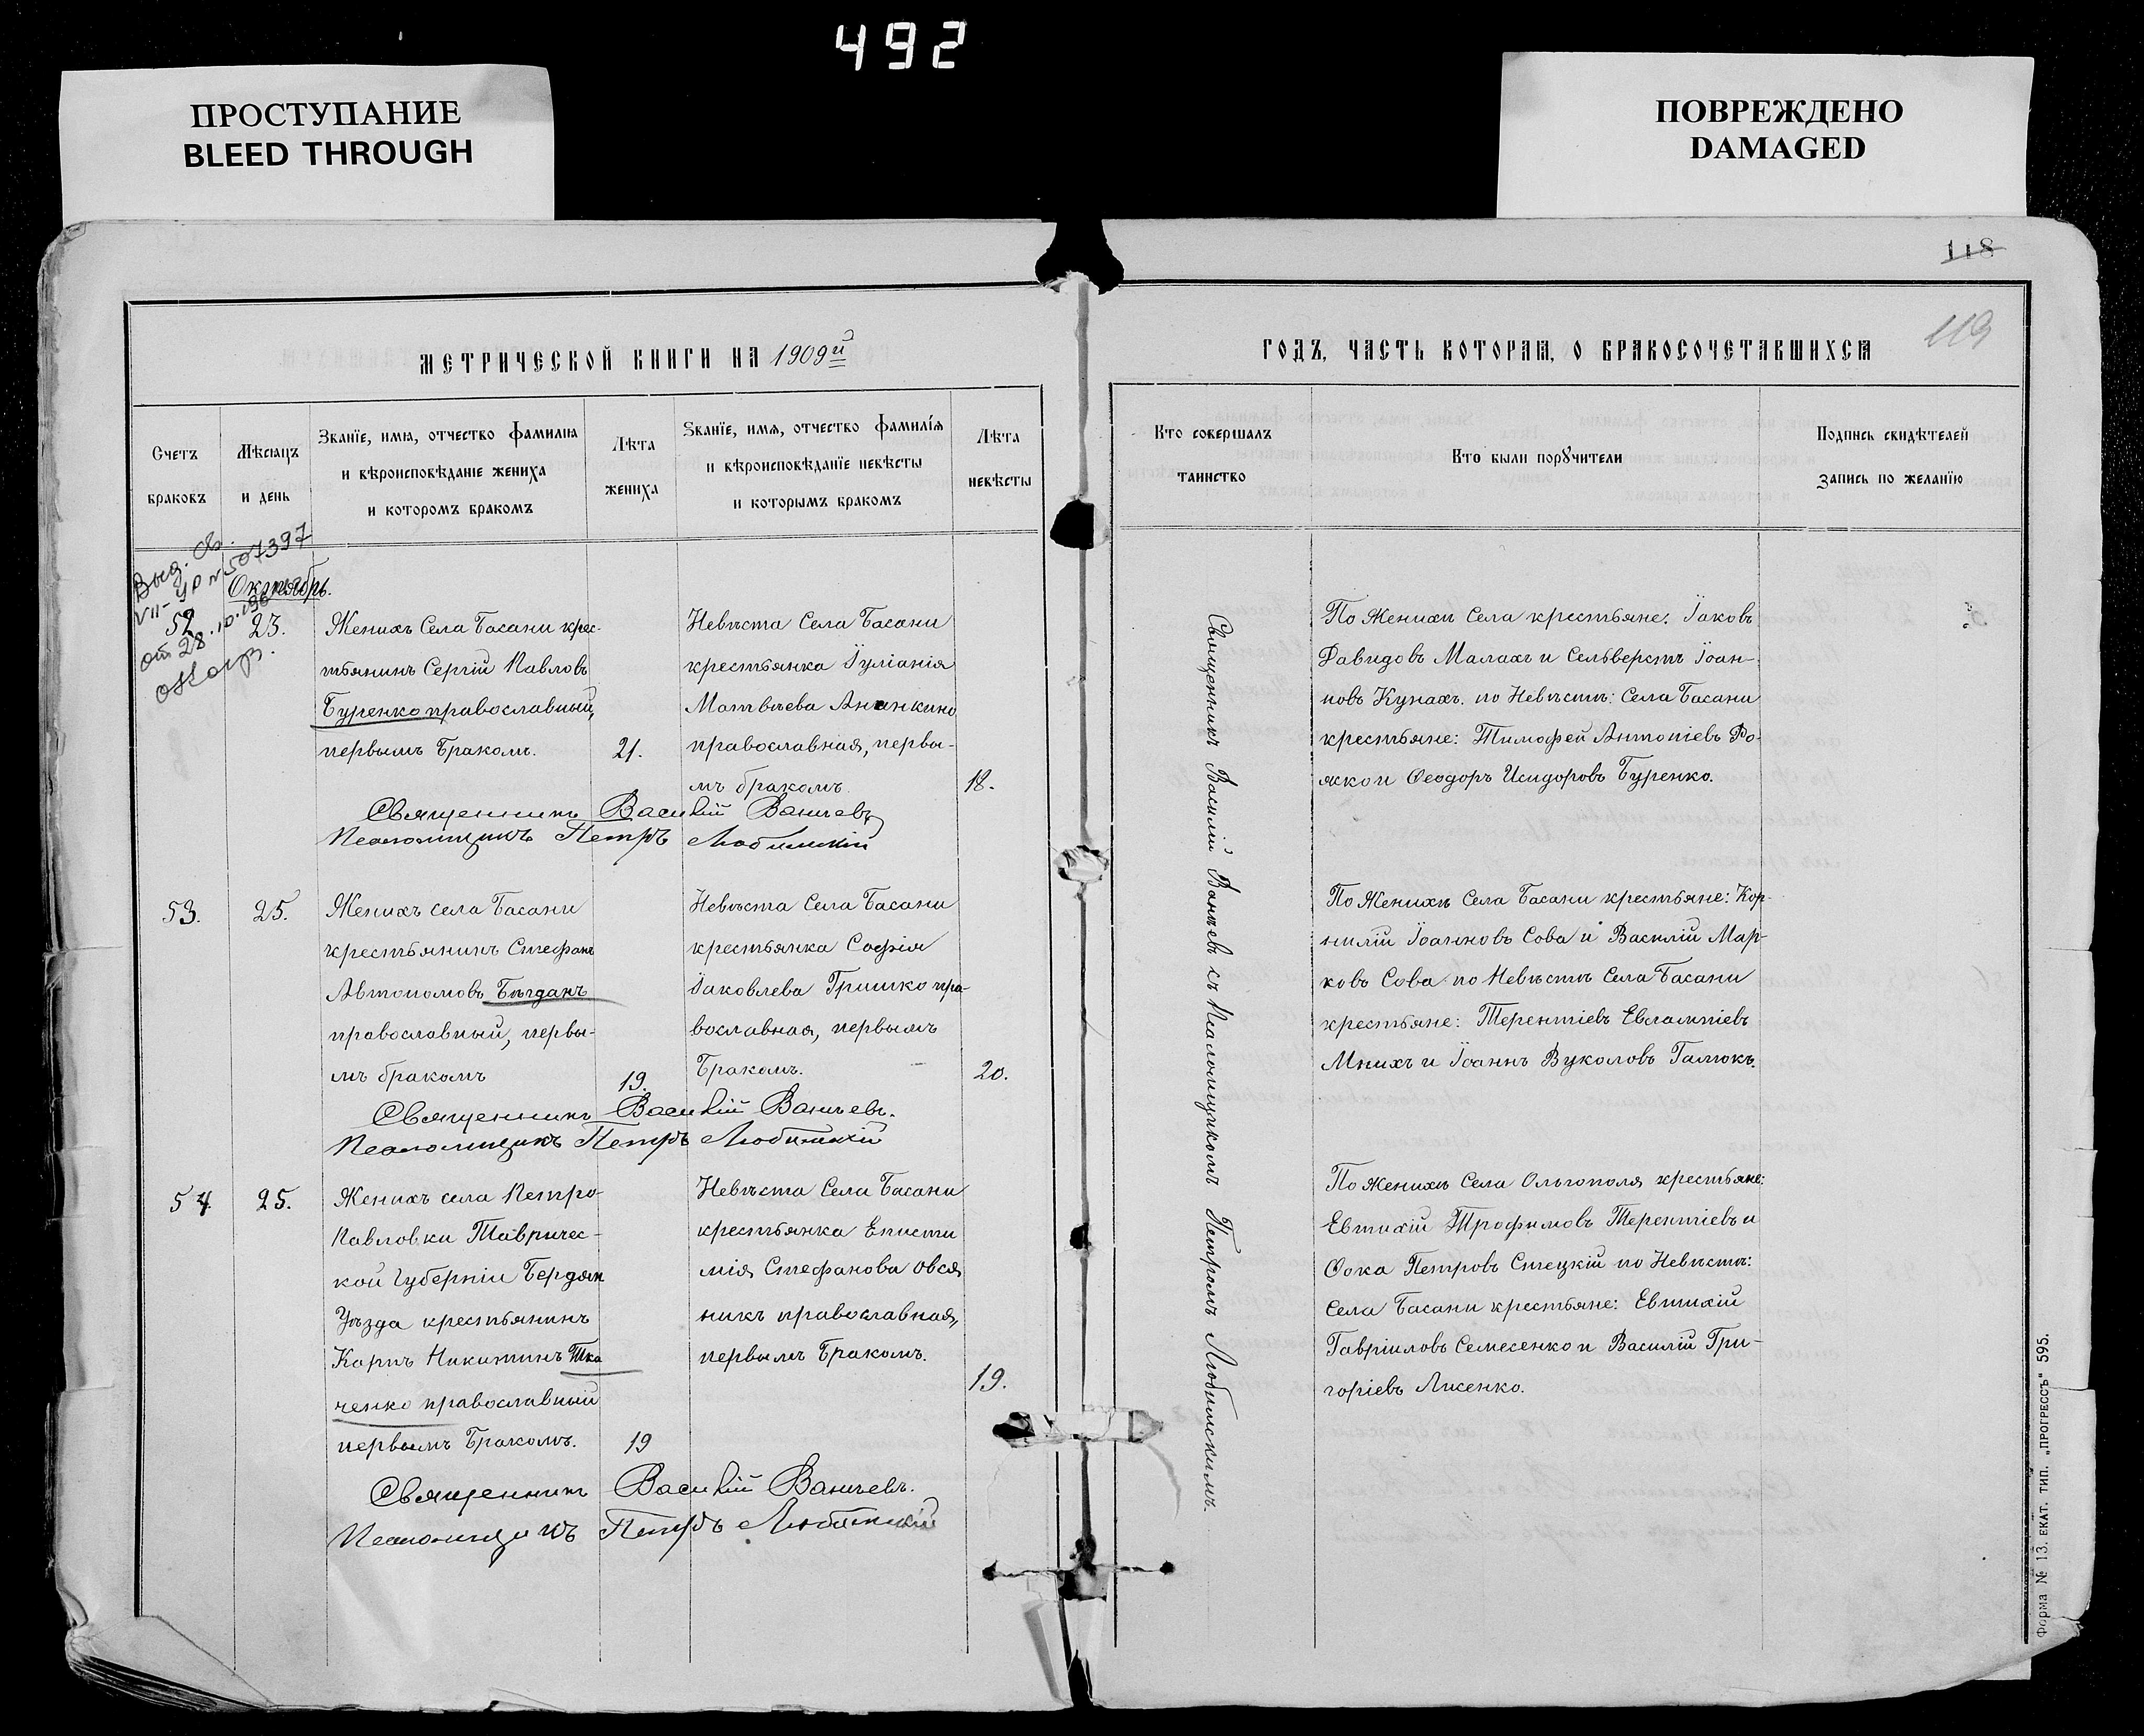 492
ПРОСТУПАНИЕ
BLEED THROUGH
ПОВРЕЖДЕНО
DAMAGED
118
119
МЕТРИЧЕСКОЙ КНИГИ НА 1909й
Счетъ
браковъ
Мѣсяцъ
и день
Званіе, имя, отчество фамилія
и вѣроисповѣданіе жениха
и которомъ бракомъ
Лѣта
жениха
Званіе, имя, отчество фамилія
и вѣроисповѣданіе невѣсты
и которымъ бракомъ
Лѣта
невѣсты
Выд.
VII- № 507397
от 28.10.
Октябрь.
52
23.
Женихъ Села Басани крес-
тьянинъ Сергій Павловъ
Буренко православный,
первымъ Бракомъ.
21.
Невѣста Села Басани
крестьянка Іуліанія
Матвѣева
православная, первы-
мъ бракомъ
18.
Священникъ Василій Ваничевъ
Псаломщикъ Петръ Любимскій
53.
25.
Женихъ села Басани
крестьянинъ Стефанъ
Автономовъ Бѣгданъ
православный, первы-
мъ бракомъ
19.
Невѣста Села Басани
крестьянка Софія
Іаковлева Гришко пра-
вославная, первымъ
Бракомъ.
20.
Священникъ Василій Ваничевъ.
Псаломщикъ Петръ Любимскій
54
25.
Женихъ села Петро-
Павловки Тавричес-
кой Губерніи Бердян
Уѣзда крестьянинъ
Карпъ Никитинъ Тка
ченко православный
первымъ Бракомъ.
19
Невѣста Села Басани
крестьянка Еписти
мія Стефанова Овся
никъ православная,
первымъ Бракомъ.
19.
Священникъ Василій Ваничевъ.
Псаломщикъ Петръ Любимскій
ГОДЪ, ЧАСТЬ КОТОРАЯ, О БРАКОСОЧЕТАВШИХСЯ
Кто совершалъ
таинство
Кто были поручители
Подпись свидѣтелей
запись по желанію
Священникъ Василій Ваничевъ съ Псаломщикомъ Петромъ Любимскимъ.
По Женихѣ Села крестьяне: Іаковъ
Давидовъ Малахъ и Сельверстъ Іоан-
новъ Кунахъ. по Невѣстѣ: Села Басани
крестьяне: Тимофей Антоніевъ Ро-
жко и Ѳеодоръ Исидоровъ Буренко.
По Женихѣ Села Басани крестьяне: Кор-
нилій Іоанновъ Сова и Василій Мар-
ковъ Сова по Невѣстѣ Села Басани
крестьяне: Терентіевъ Евлампіевъ
Мнихъ и Іоаннъ Вуколовъ Галюкъ.
По Женихѣ Села Ольгополя крестьяне:
Евтихій Трофимовъ Терентіевъ и
Ѳока Петровъ Стецкій по Невѣстѣ:
Села Басани крестьяне: Евтихій
Гавріиловъ Семесенко и Василій Гри-
горіевъ Лисенко.
Форма № 13. ЕКАТ. ТИП. „ПРОГРЕССЪ" 595.